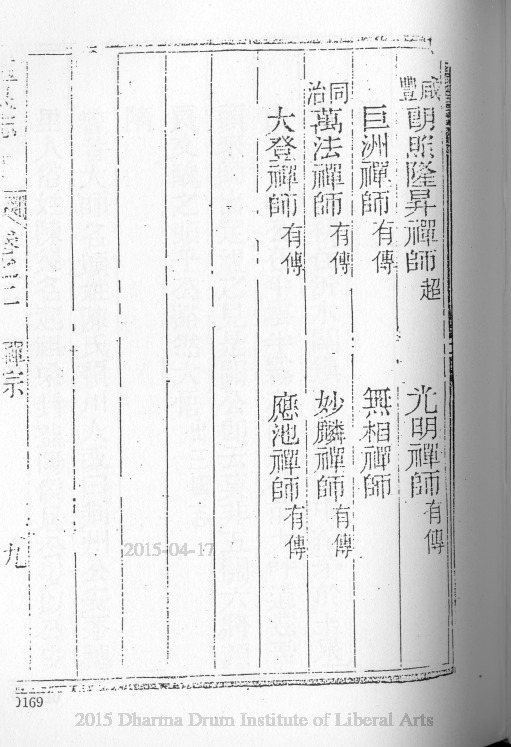 咸豐
朗照隆昇禪師超
光明禪師有傳
巨洲禪師有傳
無相禪師
同治
萬法禪師有傳
妙麟禪師有傳
大登禪師有傳
應池禪師有傳
卷之二 禪宗
九
2015-04-17
0169
2015 Dharma Drum Institute of Liberal Arts